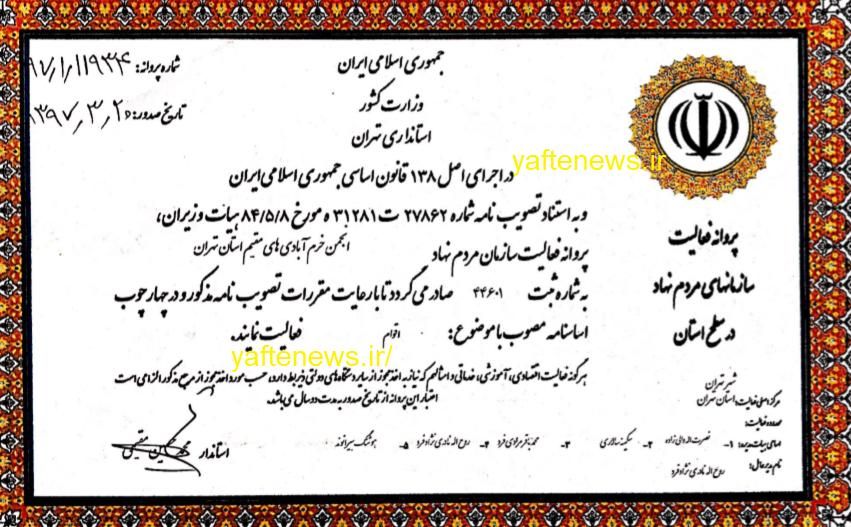 جمهوری اسلامی ایران
وزارت کشور
استانداری تهران
شماره پروانه: ۹۷/۱/۱۱۹۳۴
تاریخ صدور: ۱۳۹۷/۳/۲۰
در اجرای اصل ۱۳۸ قانون اساسی جمهوری اسلامی ایران
yaftenews.ir
و به استناد تصویب نامه شماره ۲۷۸۶۲ ت ۳۱۲۸۱ ه مورخ ۸۴/۵/۸ هیات وزیران،
پروانه فعالیت سازمان مردم نهاد انجمن خرم آبادی های مقیم استان تهران
به شماره ثبت ۴۴۶۰۱ صادر می گردد تا با رعایت مقررات تصویب نامه مذکور و در چهارچوب
اساسنامه مصوب با موضوع: اقوام فعالیت نمایند.
yaftenews.ir/
هرگونه فعالیت اقتصادی، آموزشی، خدماتی و امثالهم که نیاز به اخذ مجوز از سایر دستگاه های دولتی ذیربط دارد، حسب مورد اخذ مجوز از مرجع مذکور الزامی است
اعتبار این پروانه از تاریخ صدور به مدت دو سال می باشد.
پروانه فعالیت
سازمانهای مردم نهاد
در سطح استان
شهر تهران
مرکز اصلی فعالیت: استان تهران
محدوده فعالیت:
اسامی هیات مدیره: ۱- نصرت اله والی زاده ۲- سکینه سالاری ۳- محمد باقر مرادی فرد ۴- روح اله نادری نژاد فرد ۵- هوشنگ بیرانوند
نام مدیرعامل: روح اله نادری نژاد فرد
استاندار